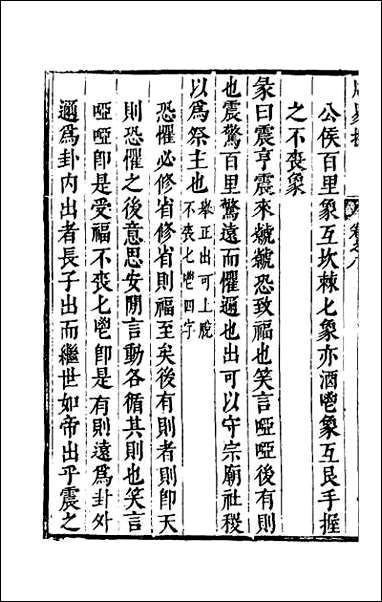 公侯百里象互坎棘匕象亦酒鬯象互艮手握
之不喪象
彖曰震亨震來虩虩恐致福也笑言啞啞後有則
也震驚百里驚遠而懼邇也出可以守宗廟社稷
以爲祭主也
舉正出可上脫
不喪匕鬯四字
恐懼必修省修省則福至矣後有則者則卽天
則恐懼之後意思安閒言動各循其則也笑言
啞啞卽是受福不喪匕鬯卽是有則遠爲卦外
邇爲卦内出者長子出而繼世如帝出乎震之